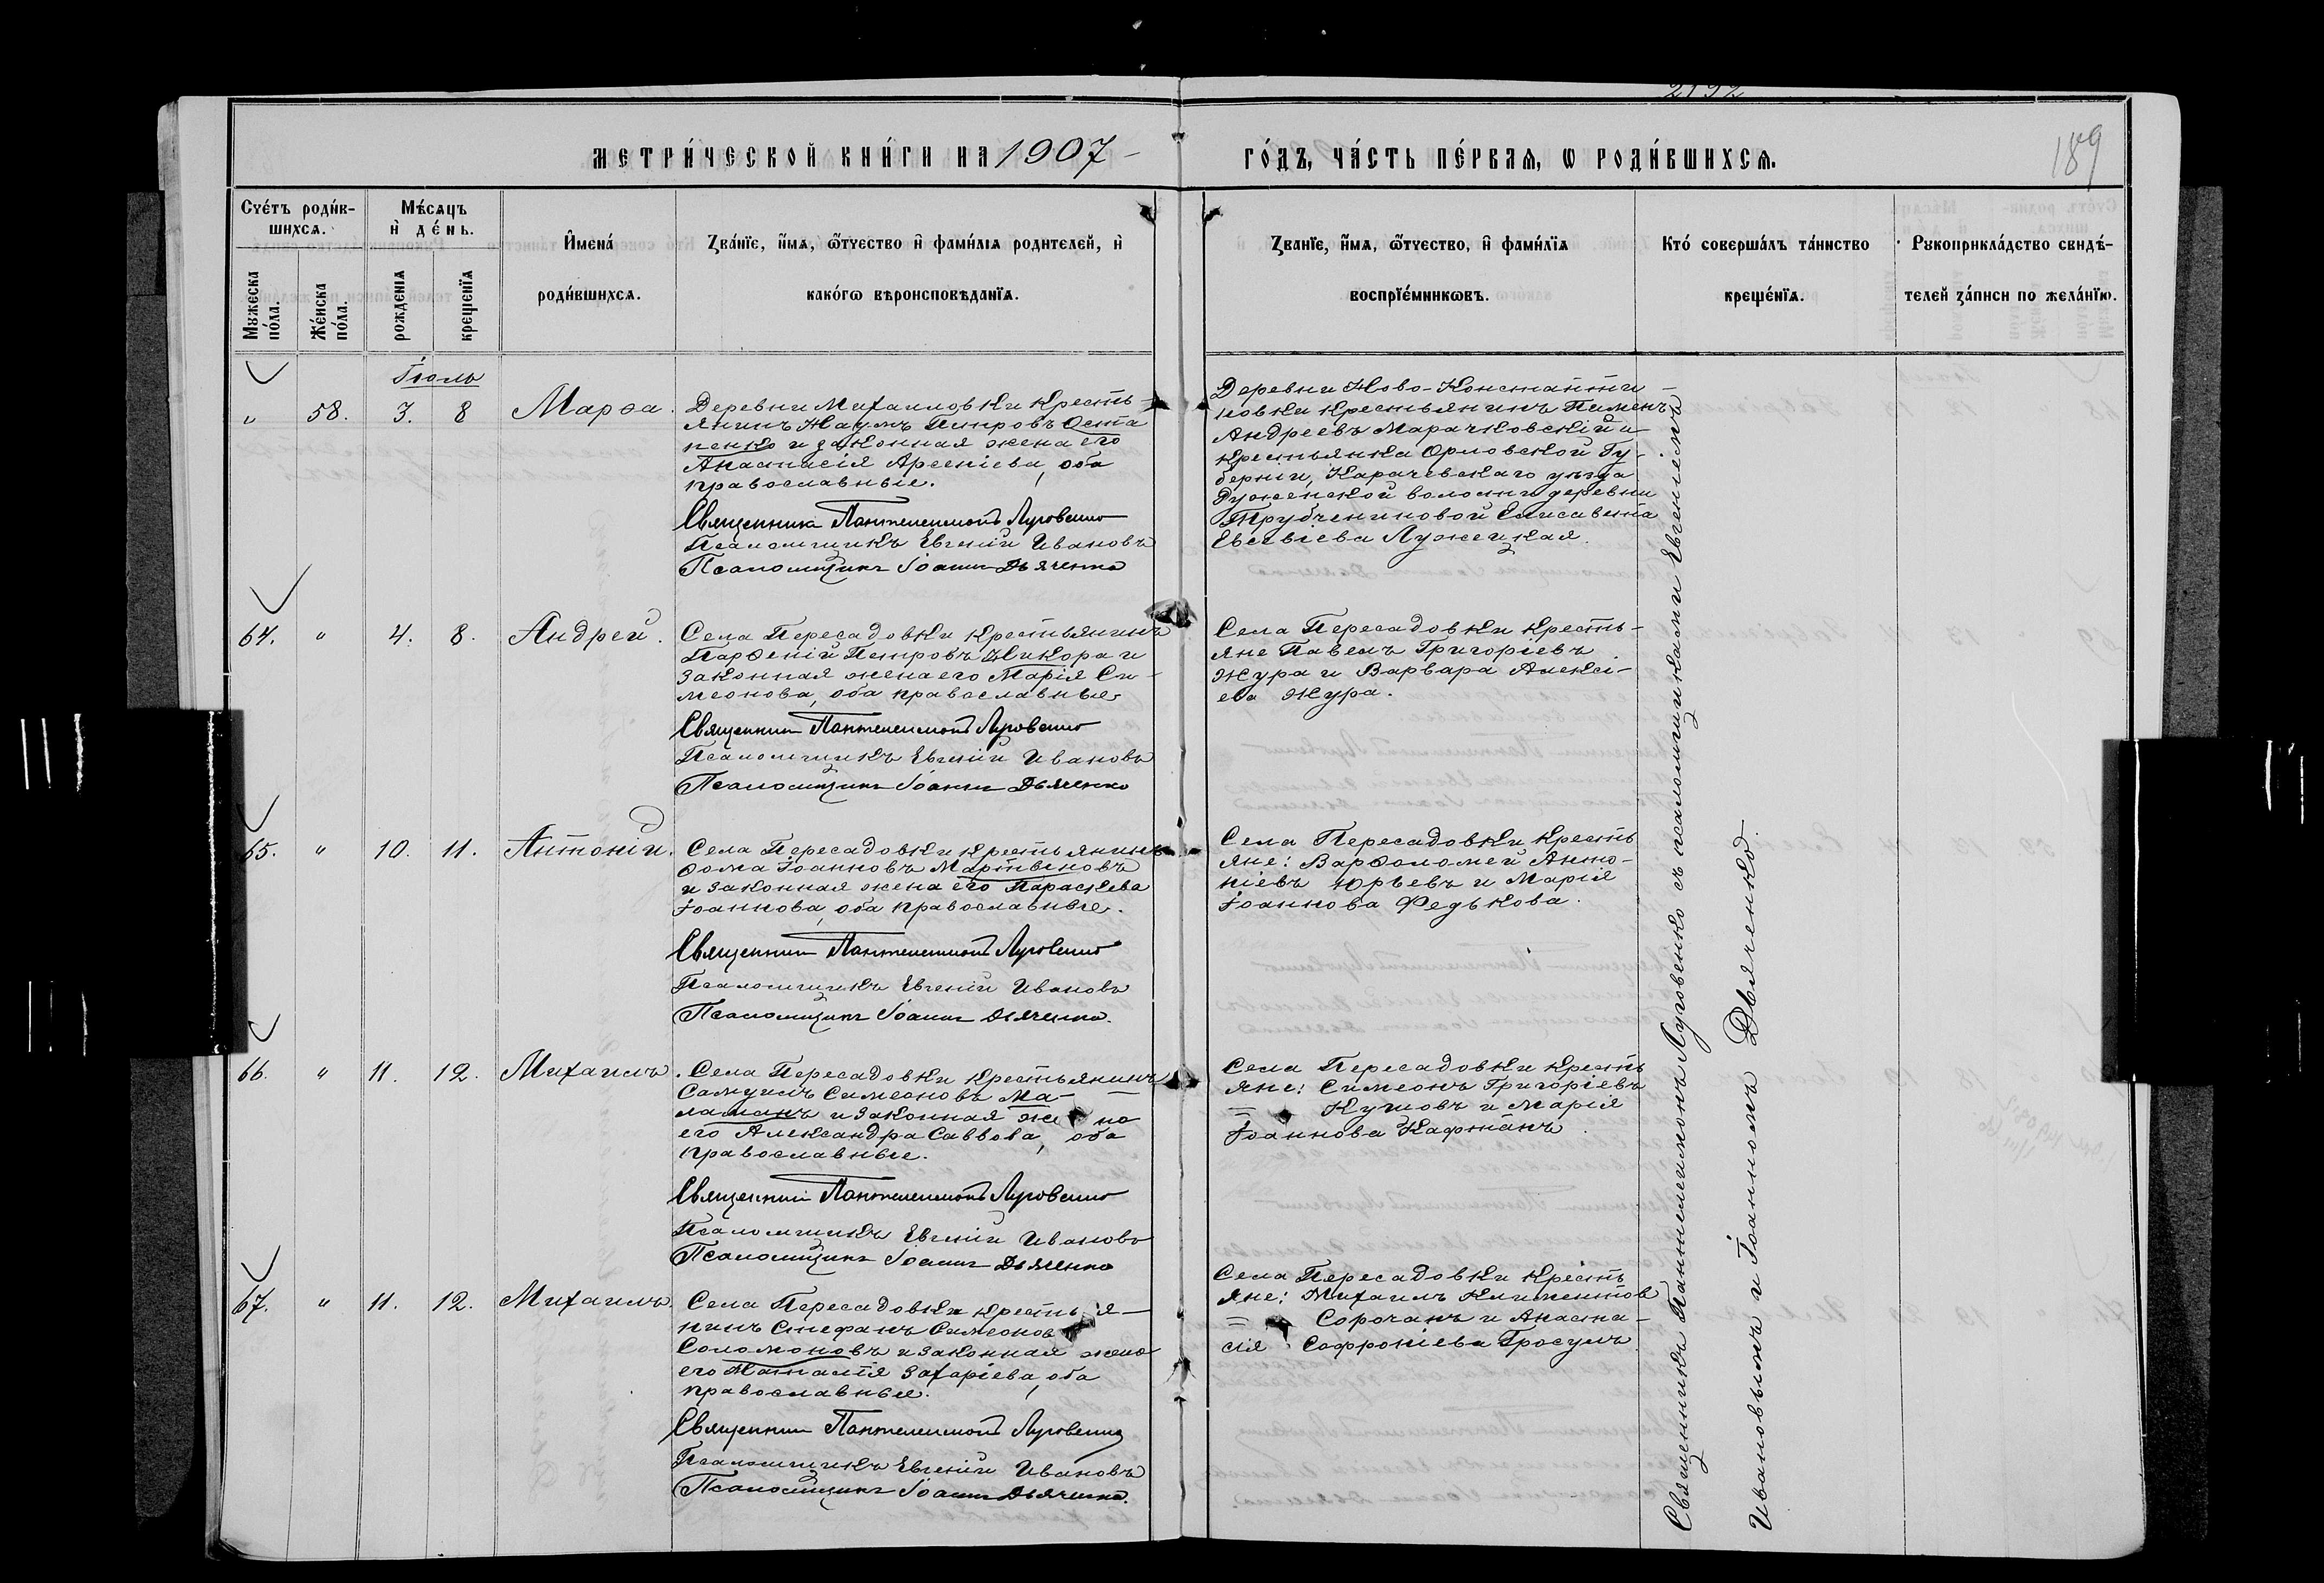 2192
189
МЕТРИ́ЧЕСКОЙ КНИ́ГИ НА 1907
ГО́ДЪ, ЧА́СТЬ ПЕ́РВАѦ, Ѡ РОДИ́ВШИХСѦ.
Сче́тъ роди́в-
шихсѧ.
Мꙋжеска
по́ла.
Же́нска
по́ла.
Мѣ́сѧцъ
и҆ де́нь.
рожденїѧ
крещенїѧ
И҆мена́
роди́вшихсѧ.
Зва́нїе, и҆́мѧ, ѻ҆́тчество и҆ фами́лїѧ родителей, и҆
како́гѡ вѣроисповѣ́данїѧ.
Званїе, и҆́мѧ, ѻ҆́тчество, и҆ фами́лїѧ
воспрїе́мникѡвъ.
Кто́ соверша́лъ та́инство
креще́нїѧ.
Рꙋкоприкла́дство свидѣ́-
телей за́писи по жела́нїю.
Іюль
" 58. 3. 8 Марѳа.
Деревни Михаиловки кресть-
янинъ Наумъ Петровъ Оста
пенко и законная жена его
Анастасія Арсеніева, оба
православные.
Священникъ Пантелеимонъ Луговенко
Псаломщикъ Евгеній Ивановъ
Псаломщикъ Іоаннъ Дьяченко
Деревни Ново-Константи-
новки крестьянинъ Пименъ
Андреевъ Марачковскій и
крестьянка Орловской Гу-
берніи, Карачевскаго уѣзда
Дуженской волости деревни
Трубчениновой Елисавета
Евсевіева Лужецкая.
64. " 4. 8. Андрей.
Села Пересадовки крестьянинъ
Парѳеній Петровъ Никора и
законная жена его Марія Си-
меонова, оба православные,
Священникъ Пантелеимонъ Луговенко
Псаломщикъ Евгеній Ивановъ
Псаломщикъ Іоаннъ Дьяченко
Села Пересадовки кресть-
яне Павелъ Григоріевъ
Жура и Варвара Алексі-
ева Жура.
65. " 10. 11. Антоній.
Села Пересадовки крестьянинъ
Ѳома Іоанновъ Мартвеновъ
и законная жена его Параскева
Іоаннова, оба православные.
Священникъ Пантелеимонъ Луговенко
Псаломщикъ Евгеній Ивановъ
Псаломщикъ Іоаннъ Дьяченко.
Села Пересадовки кресть
яне: Варѳоломей Анто-
ніевъ Юрьевъ и Марія
Іоаннова Федькова.
66. " 11. 12. Михаилъ.
Села Пересадовки крестьянинъ
Самуилъ Симеоновъ Ма-
ламанъ и законная жена
его Александра Саввова, оба
православные.
Священникъ Пантелеимонъ Луговенко
Псаломщикъ Евгеній Ивановъ
Псаломщикъ Іоаннъ Дьяченко
Села Пересадовки кресть
яне: Симеонъ Григоріевъ
Кушовъ и Марія
Іоаннова Кафтанъ.
67. " 11. 12. Михаилъ.
Села Пересадовки крестья-
нинъ Стефанъ Симеонов
Соломоновъ и законная жена
его Наталія Захаріева, оба
православные.
Священникъ Пантелеимонъ Луговенко
Псаломщикъ Евгеній Ивановъ
Псаломщикъ Іоаннъ Дьяченко.
Села Пересадовки кресть
яне: Михаилъ Климентов
Сорочанъ и Анаста-
сія Софроніева Гросулъ
Священникъ Пантелеимонъ Луговенко съ псаломщиками Евгеніемъ
Ивановымъ и Іоанномъ Дьяченко.